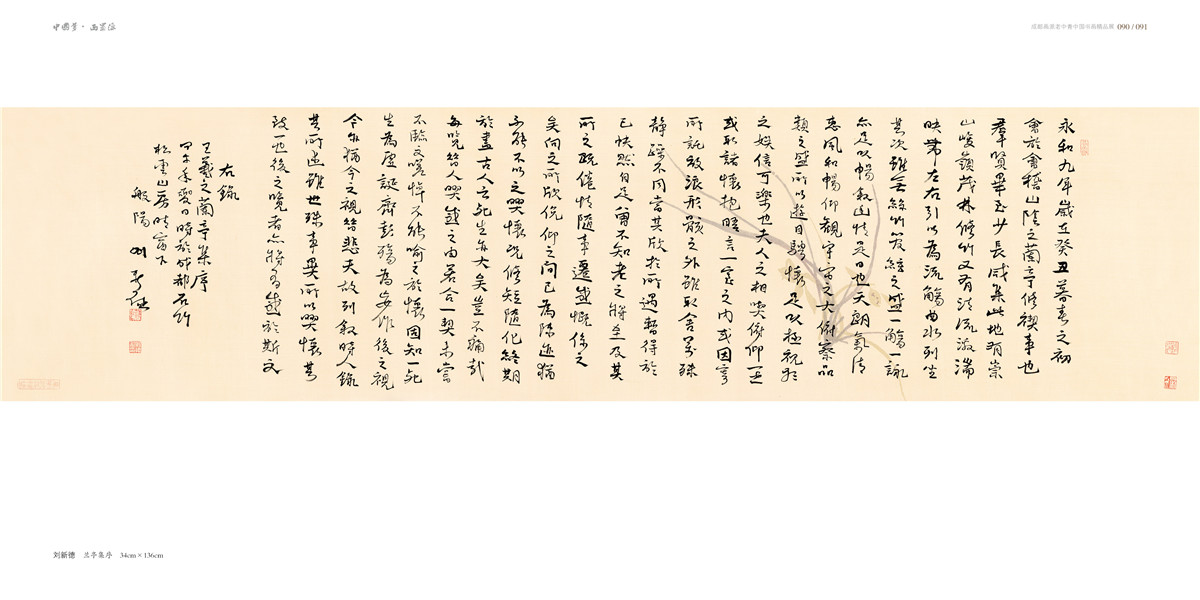 中國夢·
中国书画精品展 090 / 091
永和九年歲在癸丑暮春之初
會於會稽山陰之蘭亭修禊事也
羣賢畢至少長咸集此地有崇
山峻嶺茂林修竹又有清流激湍
映帶左右引以為流觴曲水列坐
其次雖無絲竹管絃之盛一觴一詠
亦足以暢敘幽情是日也天朗氣清
惠風和暢仰觀宇宙之大俯察品
類之盛所以遊目騁懷足以極視聽
之娛信可樂也夫人之相與俯仰一世
或取諸懷抱晤言一室之內或因寄
所託放浪形骸之外雖取舍萬殊
靜躁不同當其欣於所遇暫得於
己快然自足曾不知老之將至及其
所之既倦情隨事遷感慨係之
矣向之所欣俛仰之間已為陳迹猶
不能不以之興懷況修短隨化終期
於盡古人云死生亦大矣豈不痛哉
每覽昔人興感之由若合一契未嘗
不臨文嗟悼不能喻之於懷固知一死
生為虛誕齊彭殤為妄作後之視
今亦猶今之視昔悲夫故列敘時人錄
其所述雖世殊事異所以興懷其
致一也後之覽者亦將有感於斯文
右錄
王羲之蘭亭集序
甲午季夏日時於成都石竹
松雲山房時窗下
般陽 劉新德
刘新德 兰亭集序 34cm×136cm